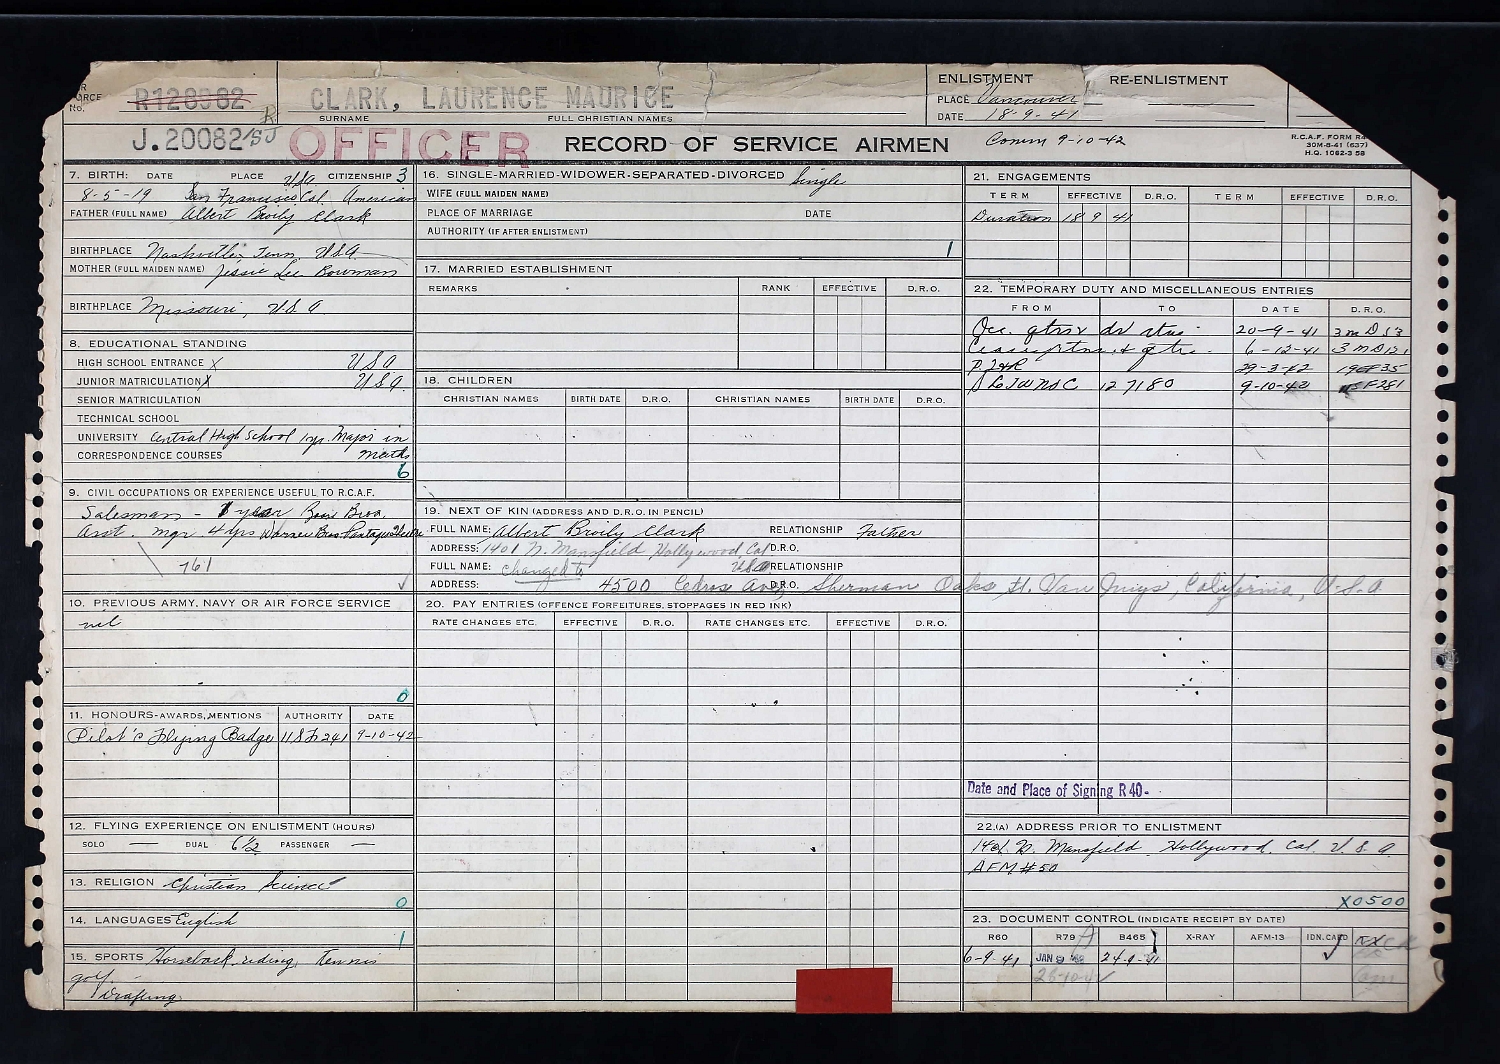 R128982
CLARK, LAURENCE MAURICE
SURNAME FULL CHRISTIAN NAMES
ENLISTMENT RE-ENLISTMENT
PLACE Vancouver
DATE 18-9-41
J.20082
OFFICER
RECORD OF SERVICE AIRMEN
Comm 9-10-42
R.C.A.F. FORM R4
30M-8-41 (637)
H.Q. 1062-3 58
7. BIRTH: DATE PLACE USA CITIZENSHIP 3
8-5-19 San Francisco Cal. American
FATHER (FULL NAME) Albert Broily Clark
BIRTHPLACE Nashville, Tenn, USA
MOTHER (FULL MAIDEN NAME) Jessie Lee Bowman
BIRTHPLACE Missouri, USA
8. EDUCATIONAL STANDING
HIGH SCHOOL ENTRANCE X USA
JUNIOR MATRICULATION X USA
SENIOR MATRICULATION
TECHNICAL SCHOOL
UNIVERSITY Central High School 1 yr. Major in
CORRESPONDENCE COURSES Maths
6
9. CIVIL OCCUPATIONS OR EXPERIENCE USEFUL TO R.C.A.F.
Salesman - 1 year Bros.
Asst. mgr 4 yrs Warner Bros Pantages Theatre
761
10. PREVIOUS ARMY, NAVY OR AIR FORCE SERVICE
nil
0
11. HONOURS-AWARDS, MENTIONS AUTHORITY DATE
Pilot's Flying Badge 9-10-42
12. FLYING EXPERIENCE ON ENLISTMENT (HOURS)
SOLO — DUAL 6½ PASSENGER —
13. RELIGION Christian Science
0
14. LANGUAGES English
1
15. SPORTS Horseback riding, tennis
golf
Drafting
16. SINGLE-MARRIED-WIDOWER-SEPARATED-DIVORCED Single
WIFE (FULL MAIDEN NAME)
PLACE OF MARRIAGE DATE
AUTHORITY (IF AFTER ENLISTMENT)
1
17. MARRIED ESTABLISHMENT
REMARKS RANK EFFECTIVE D.R.O.
18. CHILDREN
CHRISTIAN NAMES BIRTH DATE D.R.O. CHRISTIAN NAMES BIRTH DATE D.R.O.
19. NEXT OF KIN (ADDRESS AND D.R.O. IN PENCIL)
FULL NAME: Albert Broily Clark RELATIONSHIP Father
ADDRESS: 1401 N. Mansfield Hollywood, Cal D.R.O.
FULL NAME: changed to USA RELATIONSHIP
ADDRESS: 4500 Cedros Ave, D.R.O. Sherman Oaks, St. Van Nuys, California, U.S.A
20. PAY ENTRIES (OFFENCE FORFEITURES, STOPPAGES IN RED INK)
RATE CHANGES ETC. EFFECTIVE D.R.O. RATE CHANGES ETC. EFFECTIVE D.R.O.
21. ENGAGEMENTS
TERM EFFECTIVE D.R.O. TERM EFFECTIVE D.R.O.
Duration 18 9 41
22. TEMPORARY DUTY AND MISCELLANEOUS ENTRIES
FROM TO DATE D.R.O.
20-9-41
6-12-41
29-3-42
127180 9-10-42
Date and Place of Signing R40-
22.(A) ADDRESS PRIOR TO ENLISTMENT
1401 N. Mansfield Hollywood, Cal. U.S.A.
AFM #50
X0500
23. DOCUMENT CONTROL (INDICATE RECEIPT BY DATE)
R60 R79 B465 X-RAY AFM-13 IDN.CARD
6-9-41 24-9-41
28-10-42